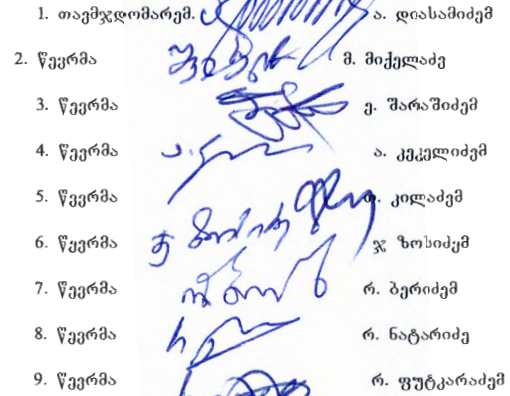 1. თავმჯდომარემ. ა. დიასამიძემ
2. წევრმა მ. მიქელაძე
3. წევრმა ე. შარაშიძემ
4. წევრმა ა. კეკელიძემ
5. წევრმა კილაძემ
6. წევრმა ჯ ზოსიძემ
7. წევრმა რ. ბერიძემ
8. წევრმა რ. ნატარიძე
9. წევრმა რ. ფუტკარაძემ